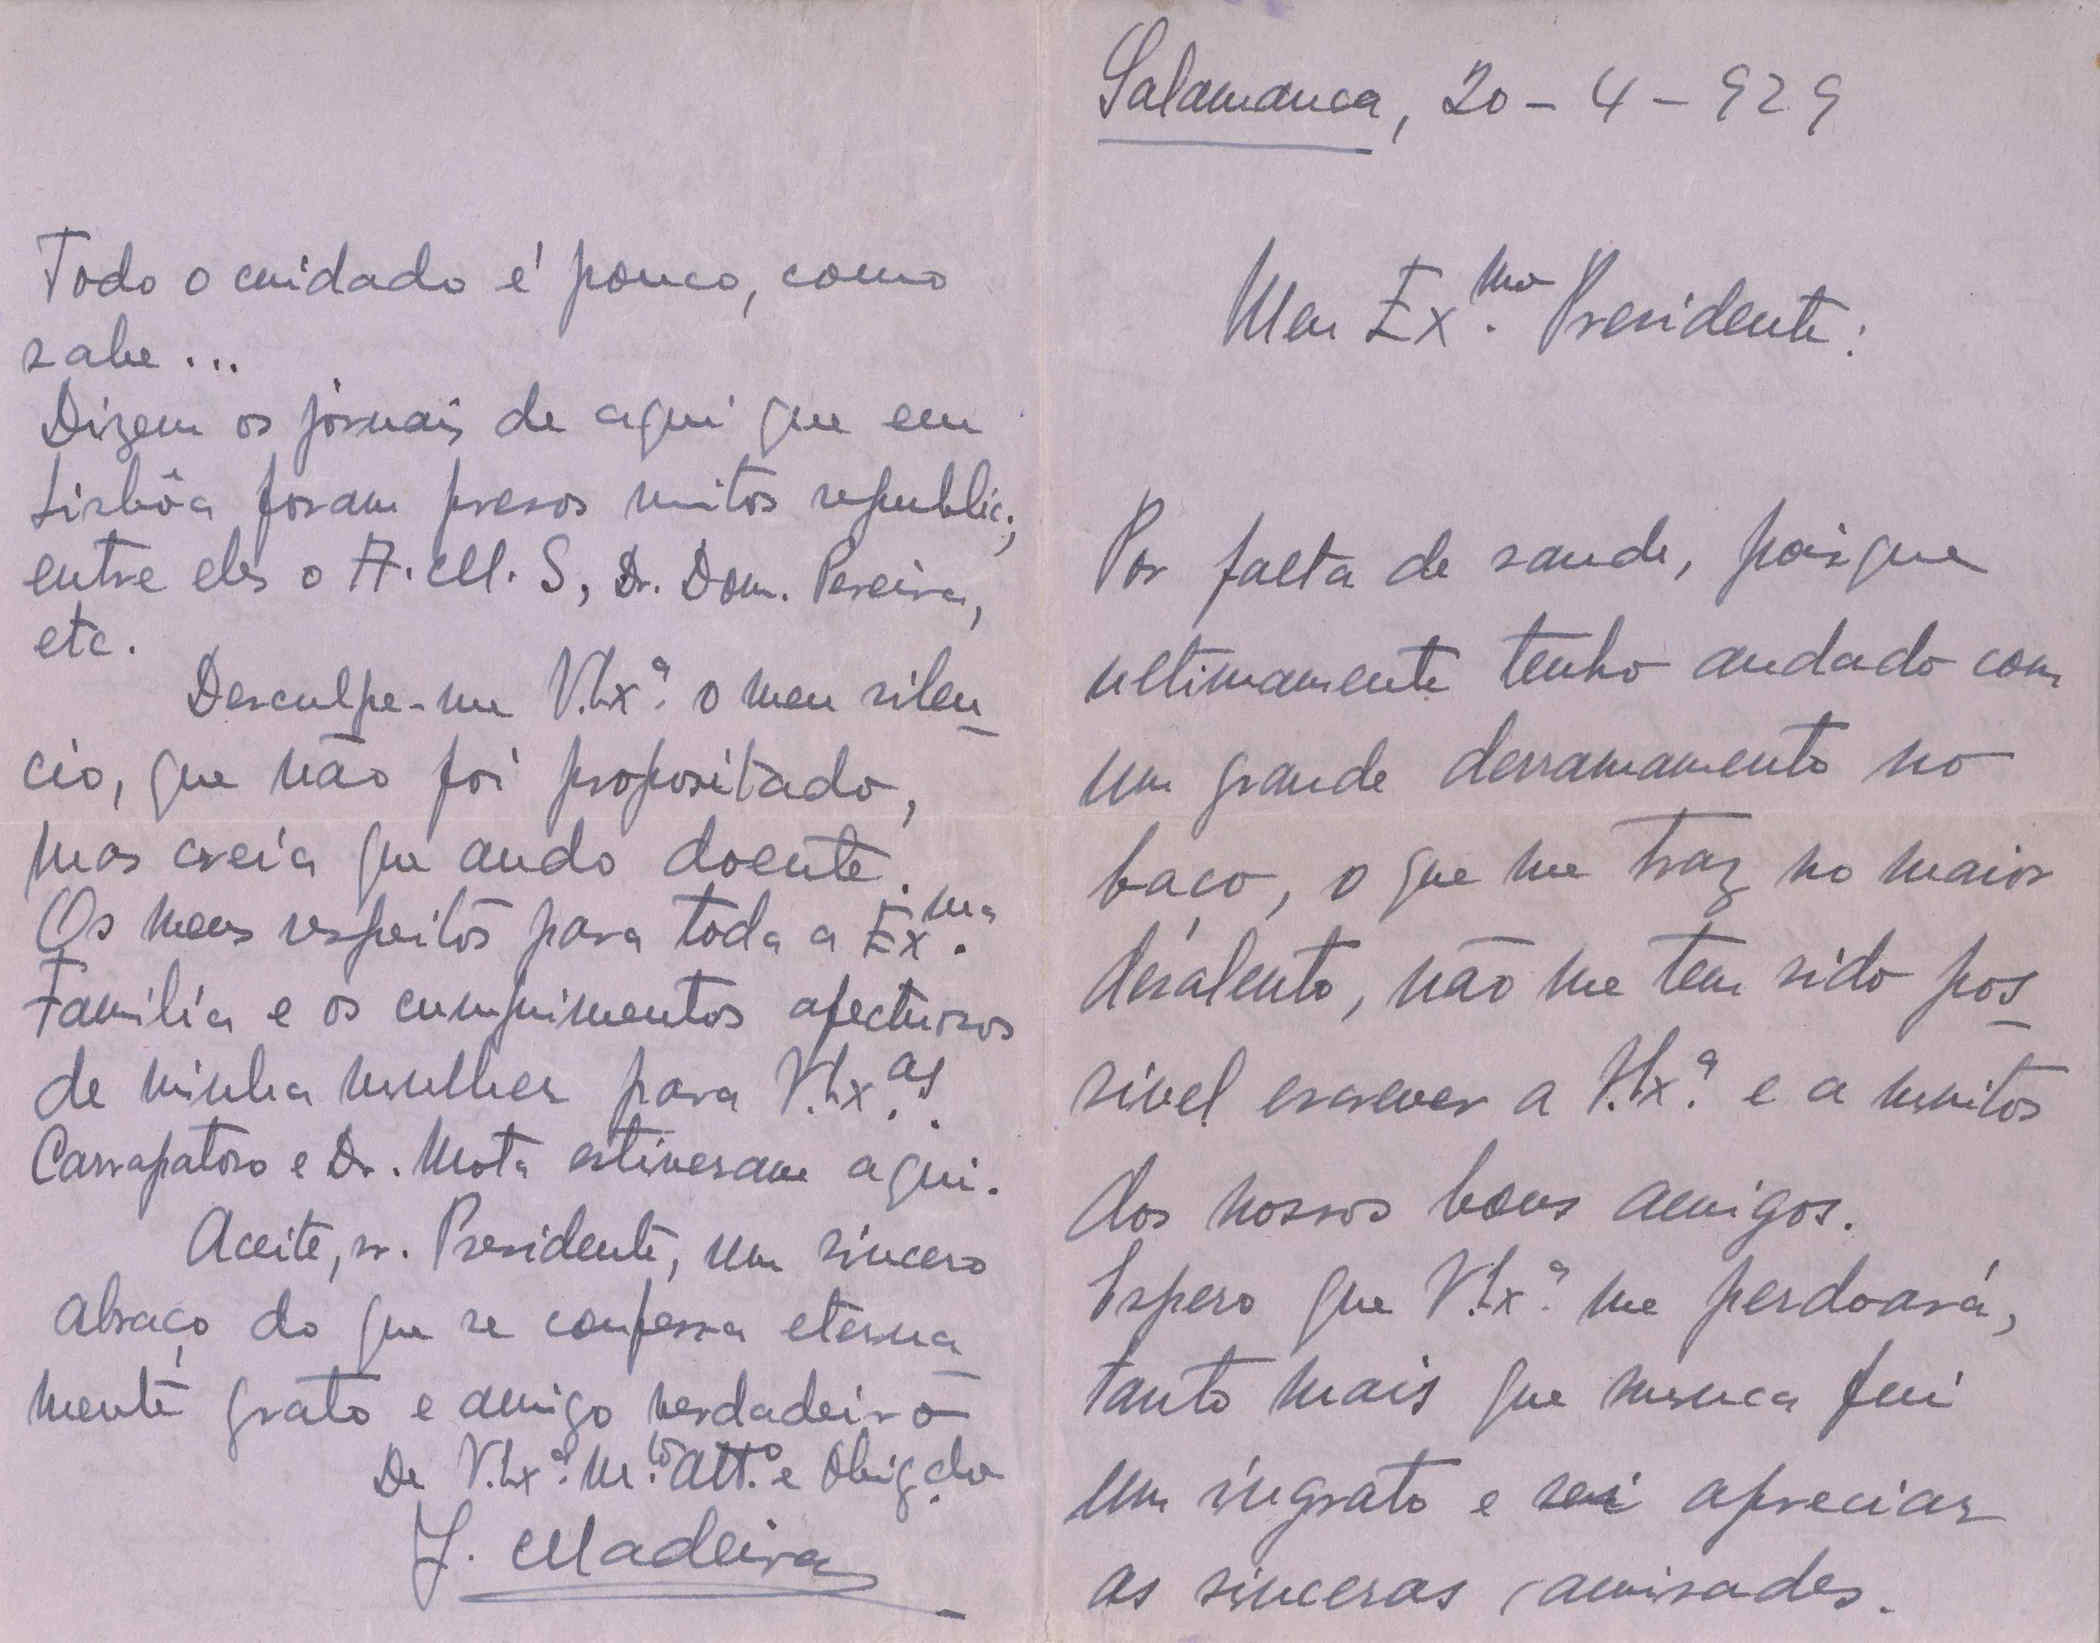 Salamanca, 20-4-929
Meu Ex.mo Presidente:
Por falta de saude, pois que
ultimamente tenho andado com
um grande derramamento no
baco, o que me traz no maior
desalento, não me tem sido pos-
sivel escrever a V.Ex.ª e a muitos
dos nossos bons amigos.
Espero que V.Ex.ª me perdoará,
tanto mais que nunca fui
um ingrato e sei apreciar
as sinceras amisades.
Todo o cuidado é pouco, como
sabe...
Dizem os jornais de aqui que em
Lisbôa foram presos muitos republic.,
entre eles o A. M. S, Dr. Dom. Pereira,
etc.
Desculpe-me V.Ex.ª o meu silen-
cio, que não foi propositado,
mas creia que ando doente.
Os meus respeitos para toda a Ex.ma
Familia e os cumprimentos afectuosos
de minha mulher para V.Ex.as.
Carrapatoso e Dr. Mota estiveram aqui.
Aceite, sr. Presidente, um sincero
abraço do que se confessa eterna-
mente grato e amigo verdadeiro
De V.Ex.ª M.to Att.o e Obrig.do
J. Madeira